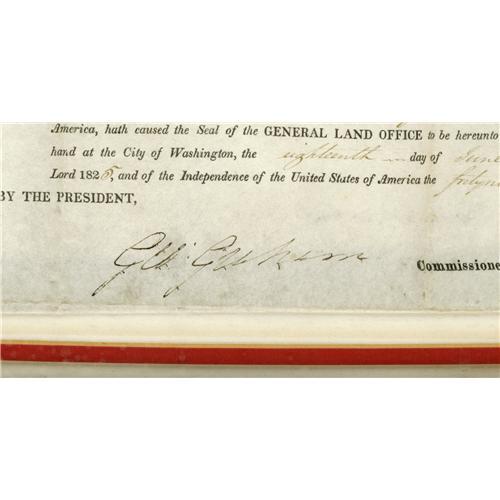 America, hath caused the Seal of the GENERAL LAND OFFICE to be hereunto
hand at the City of Washington, the eighteenth day of June
Lord 1825, and of the Independence of the United States of America the fortyni
BY THE PRESIDENT,
Geo: Graham
Commissione